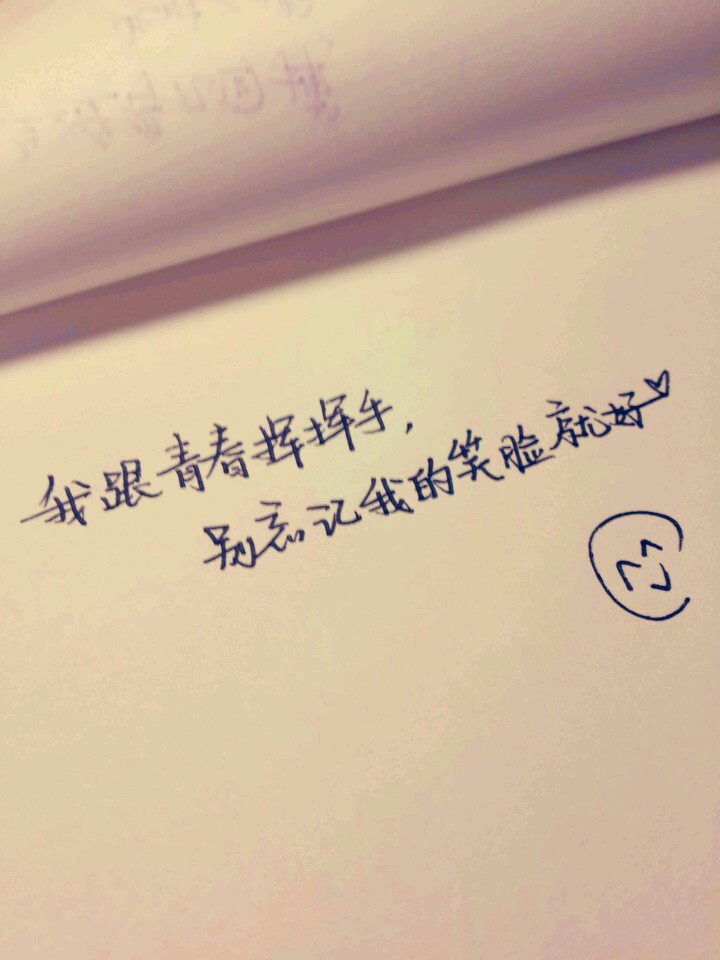 我跟青春挥挥手，
别忘记我的笑脸就好